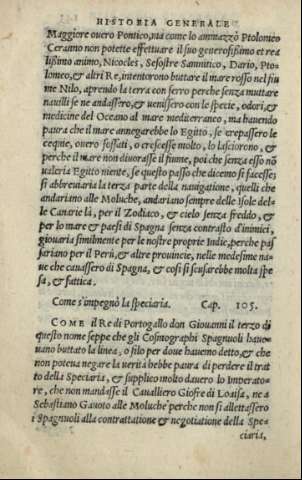 HISTORIA GENERALE
Maggiore overo Pontico, ma come lo ammazzò Ptolomeo
Ceranno non potette effettuare il suo generosissimo et rea
lissimo animo, Nicocles, Sesostre Samnitico, Dario, Pto-
lomeo, & altri Re, intentorono buttare il mar rosso nel fiu
me Nilo, aprendo la terra con ferro perche senza muttare
navili se ne andassero, & venissero con le specie, odori, &
medicine del Oceano al mare mediterraneo, ma havendo
paura che il mare annegarebbe lo Egitto, se crepassero le
, overo fossati, o crescesse molto, lo lasciorono, &
perche il mare non divorasse il fiume, poi che senza esso nõ
valeria Egitto niente, se questo passo che dicemo si facesse;
si abbreviaria la terza parte della navigatione, quelli che
andariano alle Moluche, andariano sempre delle Isole del-
le Canarie là, per il Zodiaco, & cielo senza freddo, &
per lo mare & paesi di Spagna senza contrasto d'inimici,
giovaria similmente per le nostre proprie Indie, perche pas
sariano per il Perù, & altre provincie, nelle medesime na-
ve che cavassero di Spagna, & così si scusarebbe molta spe
sa, & fattica.
Come s'impegnò la speciaria. Cap. 105.
COME il Re di Portogallo don Giovanni il terzo di
questo nome seppe che gli Cosmographi Spagnuoli have-
vano buttato la linea, o filo per dove havemo detto, & che
non poteva negare la verità hebbe paura di perdere il trat
to della Speciaria, & supplico molto davero lo Imperato-
re, che non mandasse il Cavalliero Giofre di Loaisa, ne a
Sebastiano Gavoto alle Moluche perche non si allettassero
i Spagnuoli alla contrattatione & negotiatione della Spe-
ciaria,